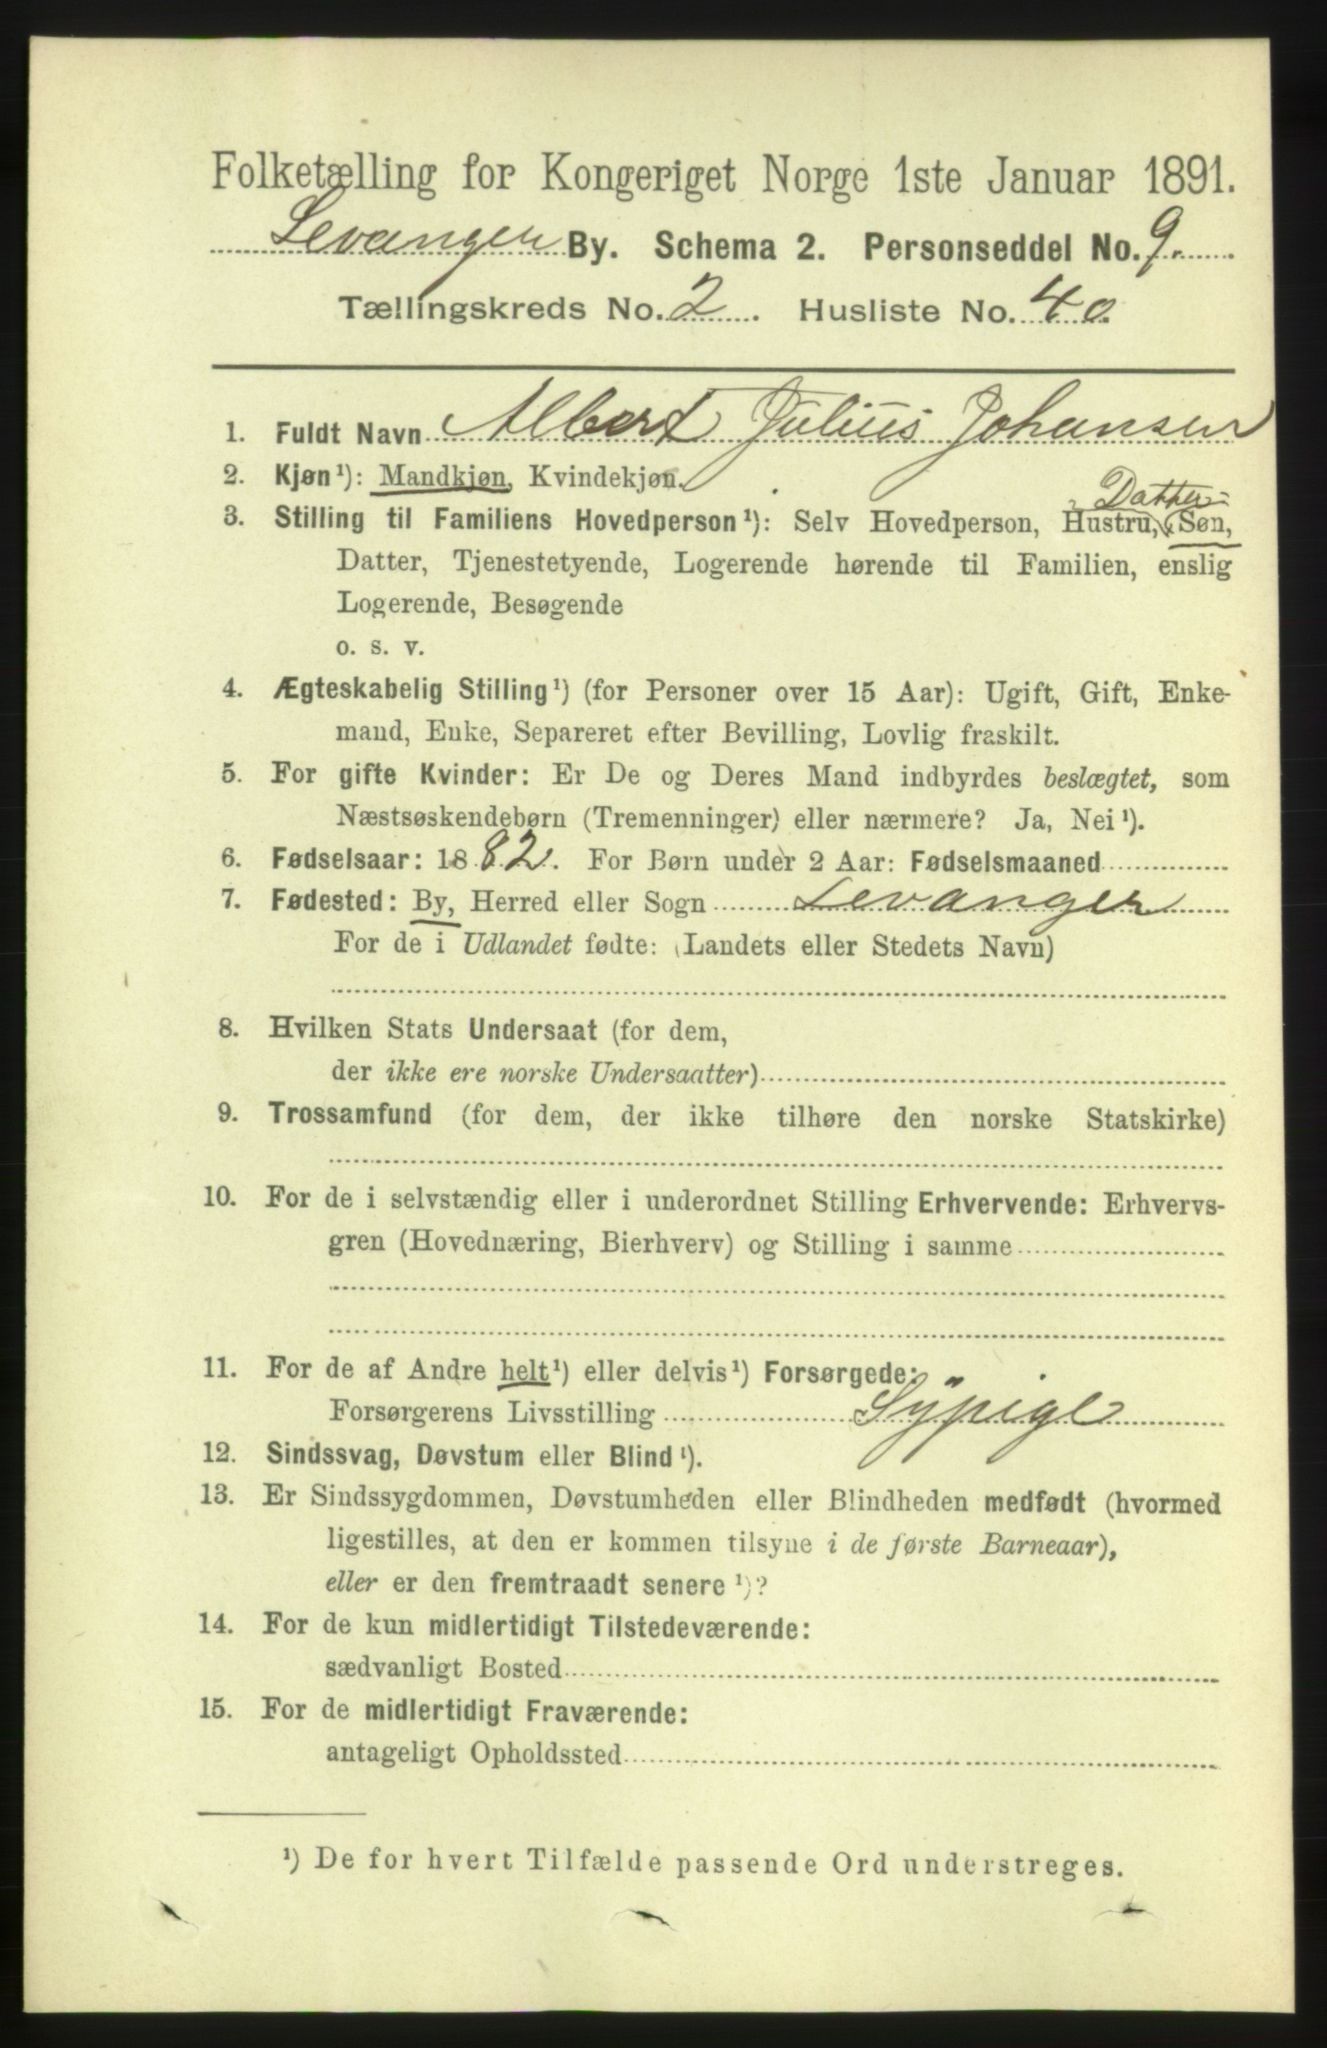 Folketælling for Kongeriget Norge 1ste Januar 1891.
Levanger By. Schema 2. Personseddel No. 9.
Tællingskreds No. 2. Husliste No. 40
1. Fuldt Navn Albert Julius Johansen
2. Kjøn¹): Mandkjøn, Kvindekjøn.
Datter
3. Stilling til Familiens Hovedperson¹): Selv Hovedperson, Hustru, Søn,
Datter, Tjenestetyende, Logerende hørende til Familien, enslig
Logerende, Besøgende
o. s. v.
4. Ægteskabelig Stilling¹) (for Personer over 15 Aar): Ugift, Gift, Enke-
mand, Enke, Separeret efter Bevilling, Lovlig fraskilt.
5. For gifte Kvinder: Er De og Deres Mand indbyrdes beslægtet, som
Næstsøskendebørn (Tremenninger) eller nærmere? Ja, Nei¹).
6. Fødselsaar: 1882. For Børn under 2 Aar: Fødselsmaaned
7. Fødested: By, Herred eller Sogn Levanger
For de i Udlandet fødte: (Landets eller Stedets Navn)
8. Hvilken Stats Undersaat (for dem,
der ikke ere norske Undersaatter)
9. Trossamfund (for dem, der ikke tilhøre den norske Statskirke)
10. For de i selvstændig eller i underordnet Stilling Erhvervende: Erhvervs-
gren (Hovednæring, Bierhverv) og Stilling i samme
11. For de af Andre helt¹) eller delvis¹) Forsørgede:
Forsørgerens Livsstilling Sÿpige
12. Sindssvag, Døvstum eller Blind¹).
13. Er Sindssygdommen, Døvstumheden eller Blindheden medfødt (hvormed
ligestilles, at den er kommen tilsyne i de første Barneaar),
eller er den fremtraadt senere¹)?
14. For de kun midlertidigt Tilstedeværende:
sædvanligt Bosted
15. For de midlertidigt Fraværende:
antageligt Opholdssted
¹) De for hvert Tilfælde passende Ord understreges.